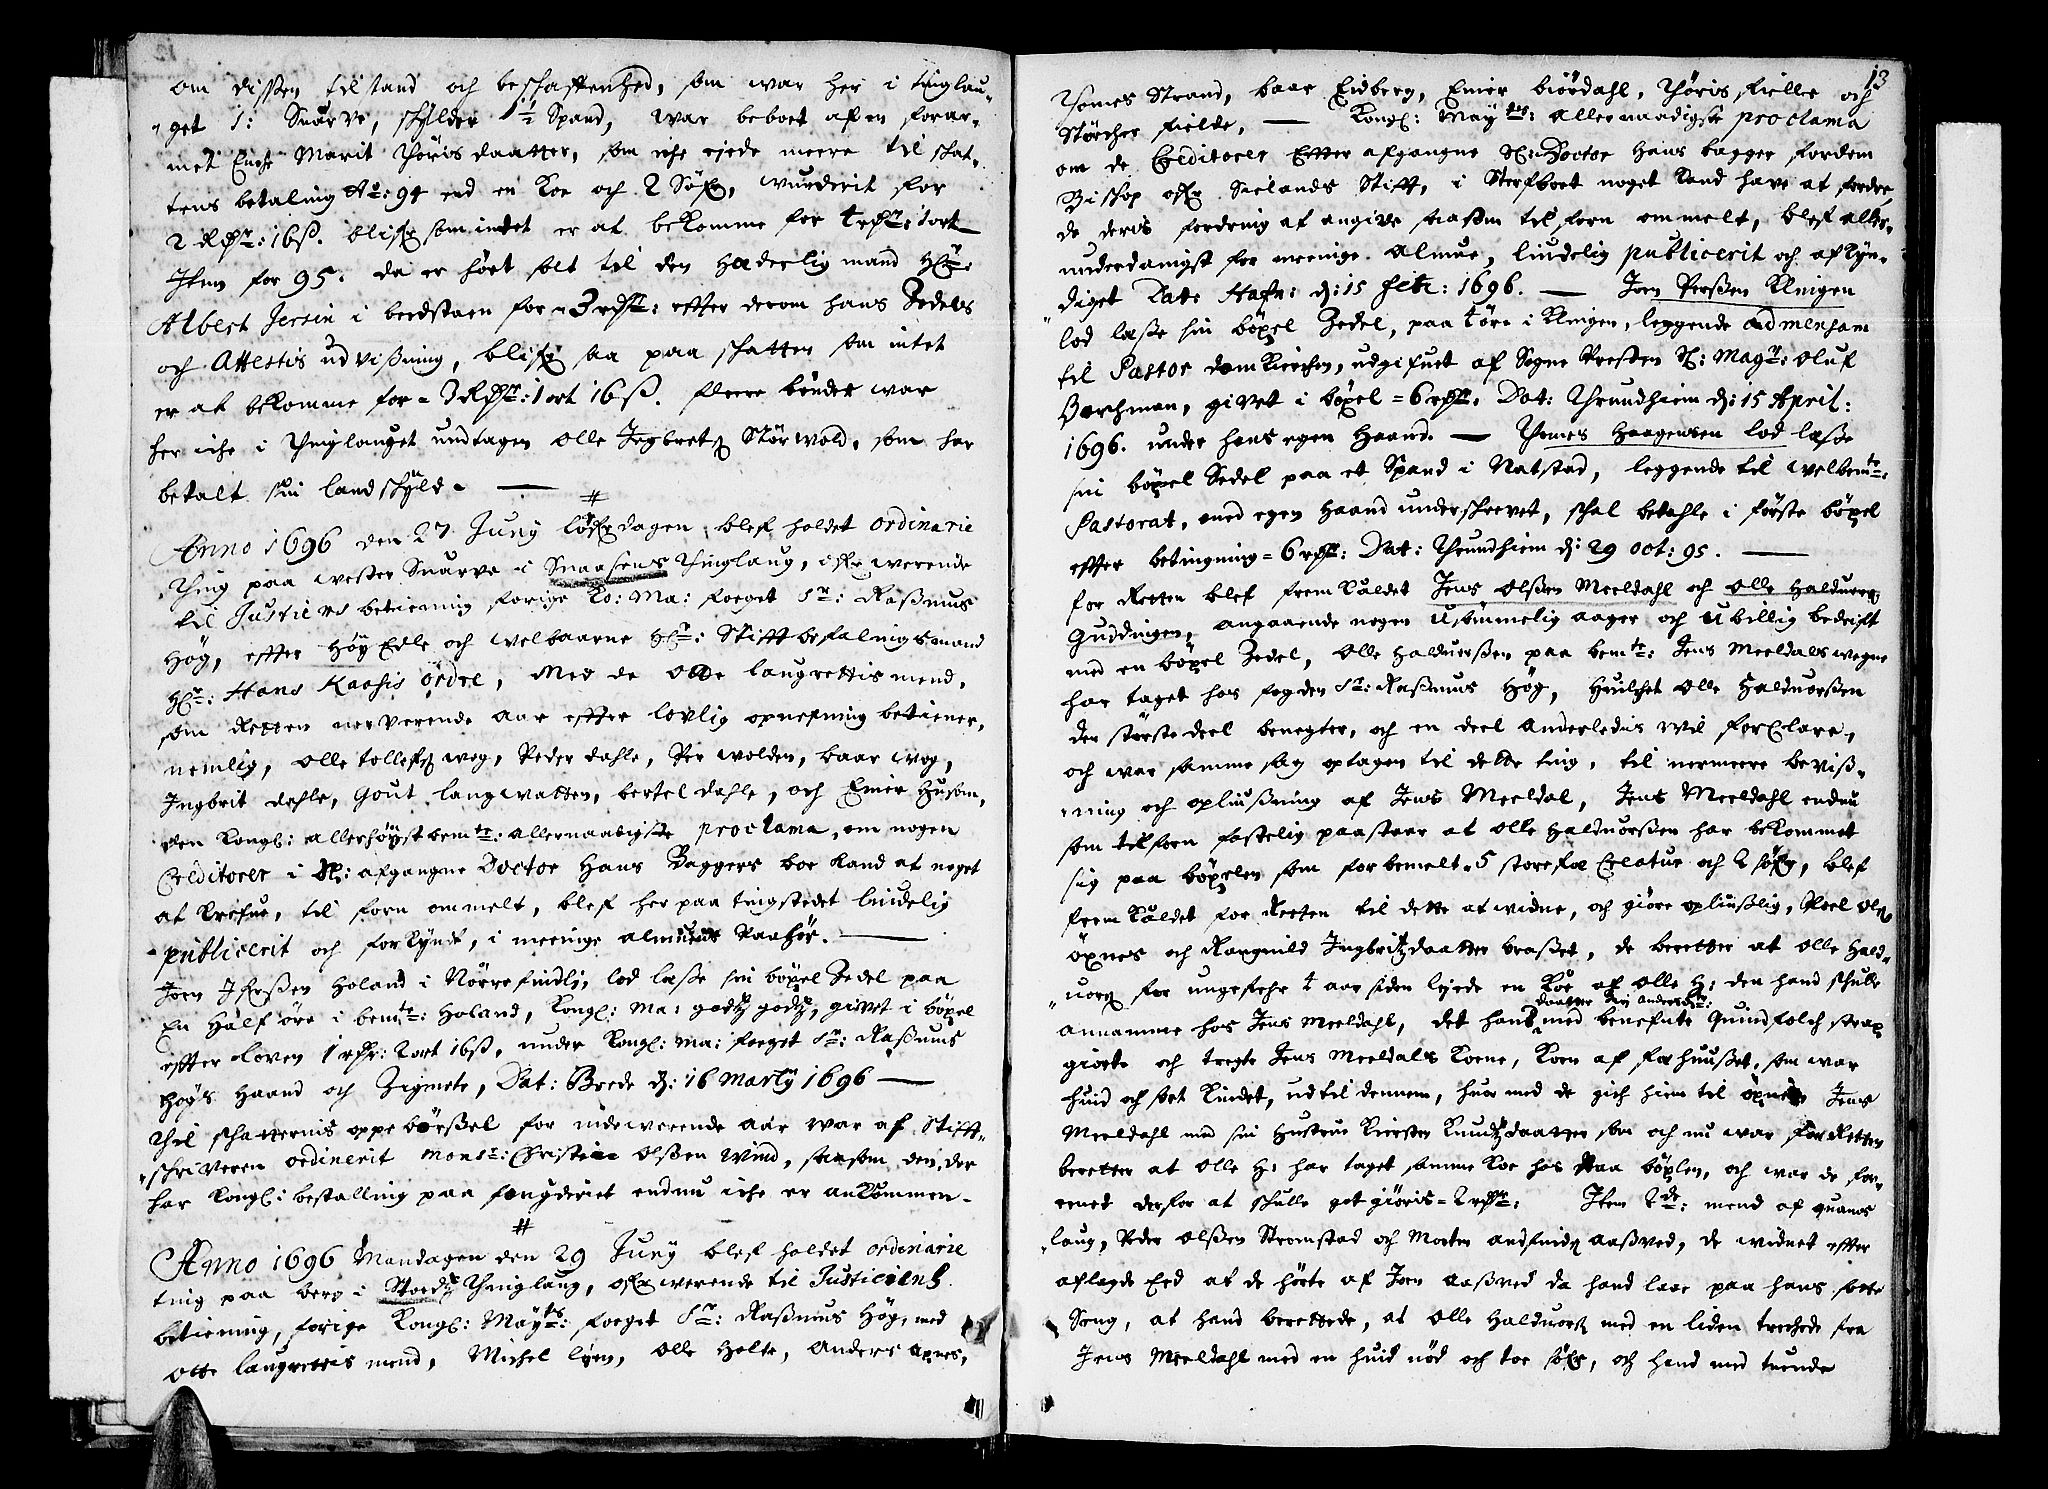 om dissen tilstand och beschaffenhed, som war her i tinglau-
get 1: Snårve, schylder 1½ Spand, war beboet af en forar-
met Enche Marit Thorisdaatter, som iche ejede meere til schat-
tens betaling Ao: 94 end en Koe och 2 Söfr, wurderit for
2 Rdr: 16ß. blifr som intet er at bekomme for 4 rdr: 1 ort
Item for 95. da er Jört solt til den Hæderlig mand Hr:
Albert Jersin i beedstaen for = 3 rdr: efter derom hans Zedels
och Attestis udvißning, blifr saa paa schatten som intet
er at bekomme for = 3 Rdr: 1 ort 16ß. fleere bönder war
her iche i Thinglauget undtagen Olle Ingbretz Störwold, som har
betalt sin landschyld. —
#
Anno 1696 den 27 Juny löfrdagen, blef holdet ordinarie
Thing paa wester Snarve i Snaasens Thinglaug, ofr werende
til Justicens betienning forige Ko: Ma: foeget Sr: Raßmus
Hög, efter Höy Edle och welbaarne Hr: Stifftbefalningsmand
Hr: Hans Kaasis ordre, Med de Otte laugrettismend,
som Retten nerverende aar efter lovlig opnefning betiener,
nemlig, Olle tollefs weg, Peder dahle, Per wolden, baar weg,
Ingbrit dahle, Gout langwatten, bertel dahle, och Einer Husom,
den Kongl: allerhöyst bemte: allernaadigste proclama, om nogen
Creditorer i Sl: afgangne Doctor Hans Baggers boe kand at noget
at Kræfue, til forn ommelt, blef her paa tingstedet liudelig
publicerit och forkyndt, i meenige almues Paahör. —
Joen Ifrßen Holand i Nörrefindli, lod læße sin böxel Zedel paa
En Half öre i bemte: Holand, Kongl: Ma: godtz godtz, givet i böxel
efter Loven 1 rdr: 2 ort 16ß, under Kongl: Ma: foeget Sr: Raßmus
Högs Haand och Zignete, Dat: Brede d: 16 Marty 1696 —
Thil schatternis oppebörßel for indewerende aar war af Stifft-
schriveren ordinerit Monsr: Christian Olßen Wind, saasom den, der
har Kongl: bestalling paa fougderiet endnu iche er ankommen.
#
Anno 1696 Mandagen den 29 Juny blef holdet ordinarie
ting paa berg i Stoedtz Thinglaug, ofr werende til Justiciens
betiening, forige Kongl: Mayts: foeget Sr: Raßmus Hög, med
Otte laugrettis mend, Michel lyen, Olle Holte, Anders axnes,
13
Thomes Strand, baar Eidberg, Einer biördahl, Thöris fielle och
Störcher fielde, — Kongl: Mayts: allernaadigste proclama
om de Creditorer Efter afgangne Sl: Doctor Hans bagger fordem
Bischop ofr Siælands Stifft, i Sterfboet noget kand have at fordre,
de deris fordring at angive saasom til forn ommelt, blef aller-
underdanigst for meenige Almue, liudelig publicerit och afkyn-
diget Dat: Hafn: d: 15 feb: 1696. — Joen Perßen Klingen
lod læße sin böxel Zedel, paa 4 öre i Klingen, leggende ad mensam
til Pastor domkirchen, udgifuet af Sogne Presten Sl: Magr: Oluf
Borchman, givet i böxel = 6 rdr. Dat: Thrundhiem d: 15 April:
1696. under hans egen Haand. — Thomes Haagensen lod læße
sin böxel Sedel paa et Spand i Natstad, leggende til welbemte:
Pastorat, med egen Haand underschrevet, schal betahle i förste böxel
efter betingning = 6 rdr: Dat: Thrundhiem d: 29 Oct: 95. —
for Retten blef fremkaldet Jens Olßen Meeldahl och Olle Halduorß
Guddingen, angaaende nogen usömmelig aager och ubillig bedrift
med en böxel Zedel, Olle Halduorßen paa bemte: Jens Meeldals wegne
har taget hos fogden Sr: Raßmus Hög, Huilchet Olle Halduorßen
den störste deel benegter, och en deel Anderledis wil forclare,
och war samme sag optagen til dette ting, til nermeere beviß-
ning och opliußning af Jens Meeldal, Jens Meeldahl endnu
som tilforn fastelig paastaar at Olle Halduorßen har bekommet
sig paa böxelen som forbemelt = 5 store fæ Creatur och 2 söfr, blef
fremkaldet for Retten til dette at widne, och giöre opliußlig, Poel Olß
öxnes och Rangnild Ingbritzdaatter braßet, de beretter at Olle Hald-
uorß for ungefehr 4 aar siden lejede en Koe af Olle H: den hand schulle
annamme hos Jens Meeldahl, det hans daatter Siri Andersdtr: med benefnte Quindfolch strax
giorte och tregte Jens Meeldals Koene, Koen af fæhuußet, som war
huid och sort Kindet, ud til dennem, huor med de gich hiem til öxnes. Jens
Meeldahl med sin Hustrue Kiersten Knudtzdaatter som och nu war for Retten
beretter at Olle H: har taget samme Koe hos paa böxlen, och war de for-
eenet derfor at schulle gotgiöris = 2 rdr: Item 2de: mend af quams
laug, Peder Olßen Stromstad och Morten andfinds aaßved, de widnet efter
aflagde Eed at de hörte af Joen aaßved da hand laae paa hans sotte
Seng, at hand berettede, at Olle Halduorß med en liden trechede fra
Jens Meeldahl med en huid nöd och toe söfr, och hand med tuende